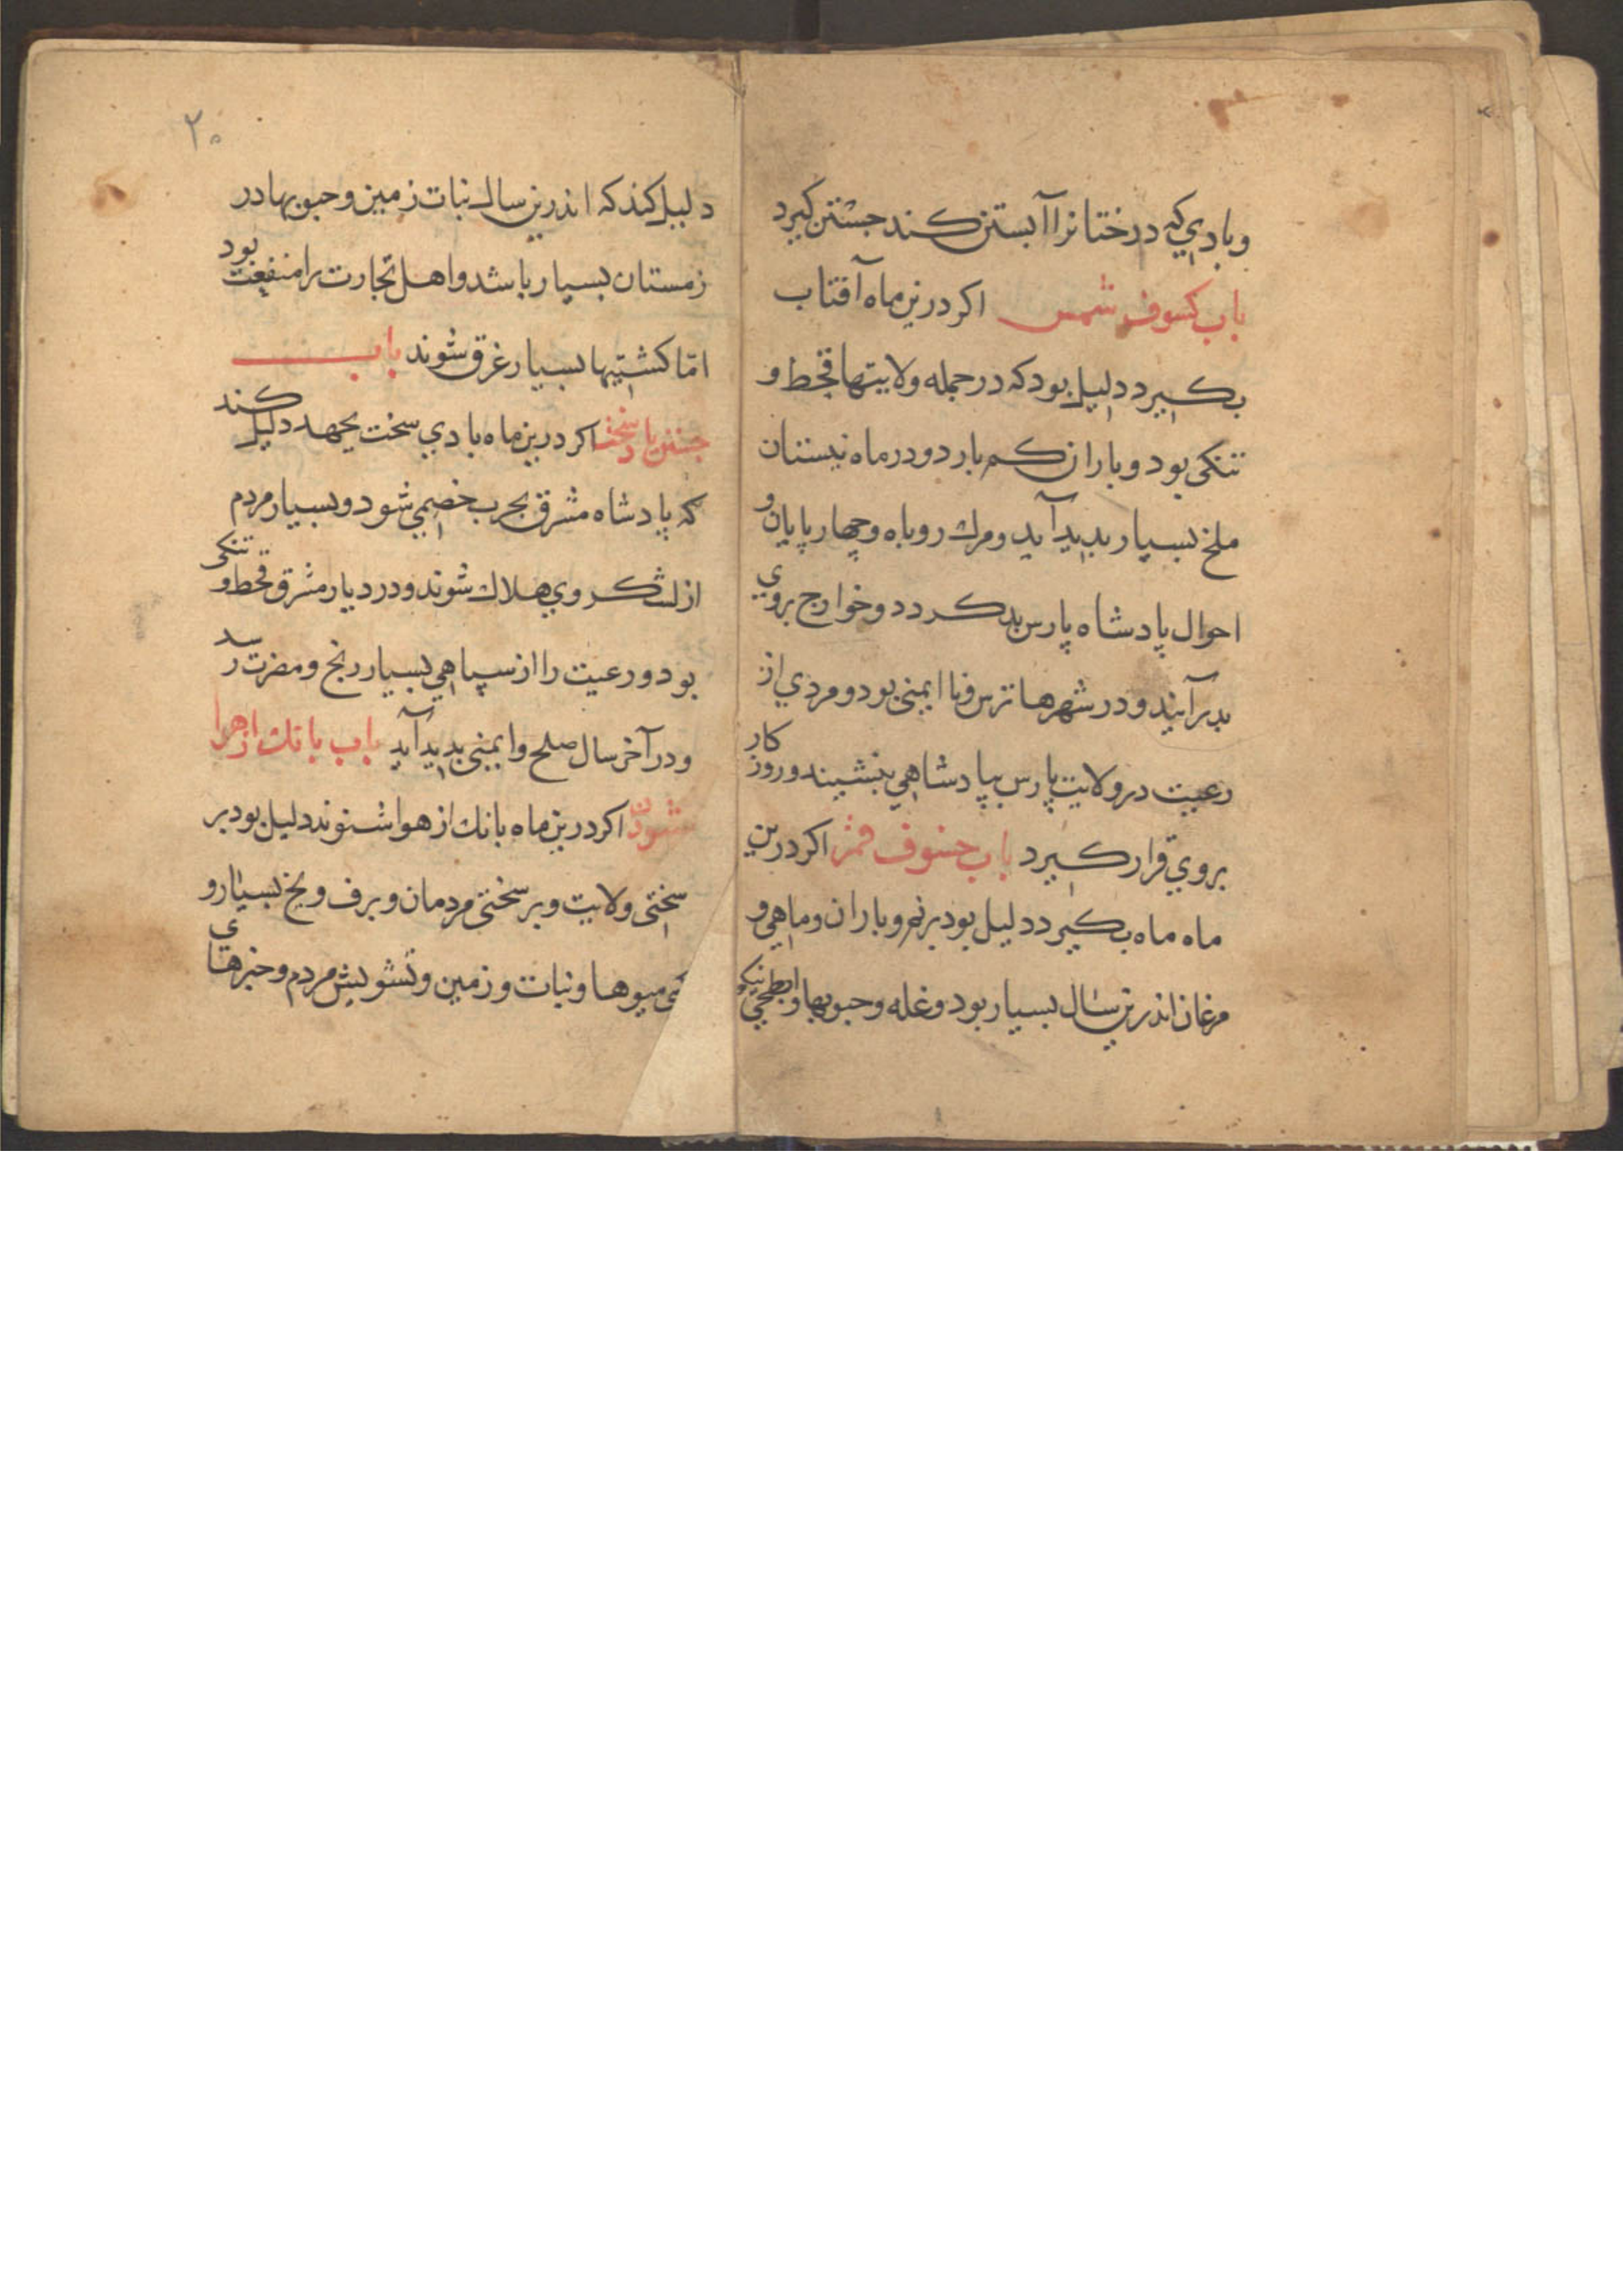 وبادي که درختانرا آبستن کند جستن کیرد
باب کسوف شمس اکر درین ماه آفتاب
بکیرد دلیل بود که در جمله ولایتها قحط و
تنکی بود و باران کم بارد و در ماه نیستان
ملخ بسیار بدید آید و مرك روباه و چهارپایان و
احوال پادشاه پارس بد کردد و خوارج بروي
بدر آیند و در شهرها ترس و نا ایمنی بود و مردي از
رعیت در ولایت پارس بپادشاهي بنشیند و روز کار
بروي قرار کیرد باب خسوف قمر اکر درین
ماه ماه بکیرد دلیل بود بر نم و باران و ماهي و
مرغان اندرین سال بسیار بود و غله و حبوبها نیکو
۲۰
دلیل کند که اندرین سال نبات زمین و حبوبها در
زمستان بسیار باشد و اهل تجارت را منفعت بود
امّا کشتیها بسیار غرق شوند باب
جستن باد سخت اکر درین ماه بادي سخت بجهد دلیل کند
که پادشاه مشرق بحرب خصمي شود و بسیار مردم
از لشکر وي هلاك شوند و در دیار مشرق قحط و تنکی
بود و رعیت را از سپاهي بسیار رنج و مضرت رسد
و در آخر سال صلح و ایمنی بدید آید باب بانك از هوا
شنودن اکر درین ماه بانك از هوا شنوند دلیل بود بر
سختی ولایت و بر سختی مردمان و برف و یخ بسیار و
میوها و نبات و زمین و تشویش مردم و خبرهاي